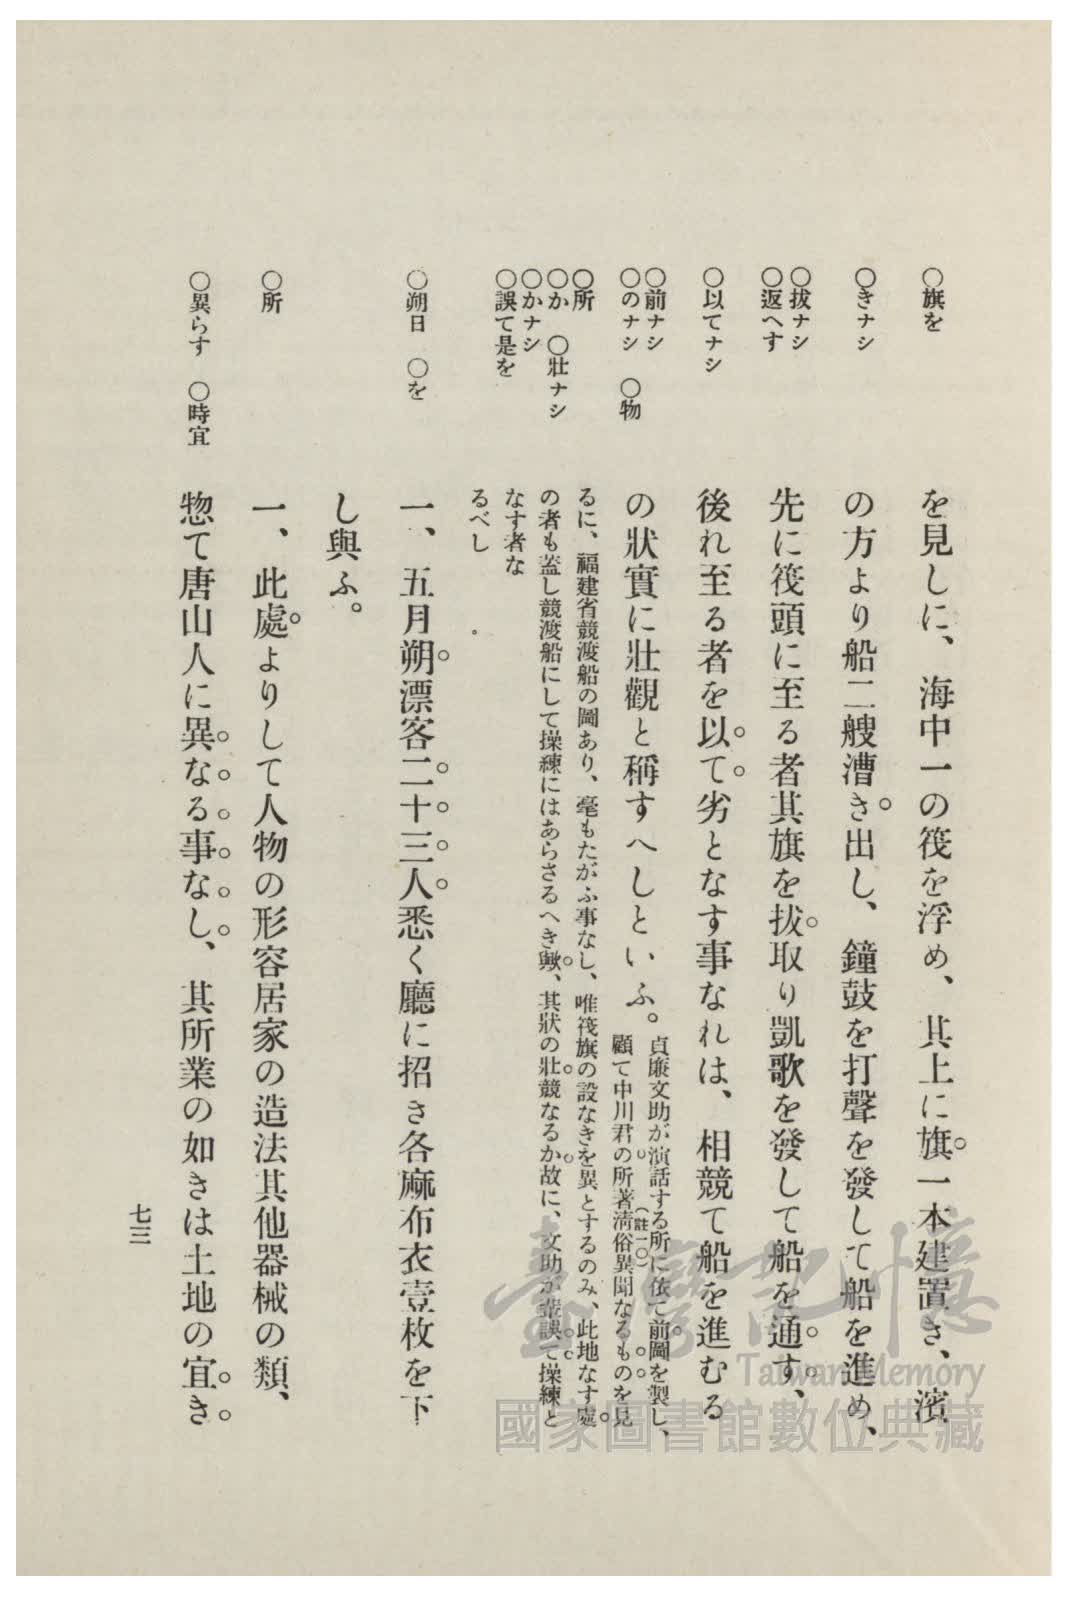 ○旗を
○きナシ
○拔ナシ
○返へす
○以てナシ
○前ナシ
○のナシ　○物
○所
○か　○壯ナシ
○かナシ
○誤て是を
○朔日　○を
○所
○異らす　○時宜
を見しに、海中一の筏を浮め、其上に旗一本建置き、濱
の方より船二艘漕き出し、鐘鼓を打聲を發して船を進め、
先に筏頭に至る者其旗を拔取り凱歌を發して船を通す、
後れ至る者を以て劣となす事なれは、相競て船を進むる
の狀實に壯觀と稱すへしといふ。
貞廉文助が演話する所に依て前圖を製し、
顧て中川君の所著淸俗異聞なるものを見
（註一〇）
るに、福建省競渡船の圖あり、毫もたがふ事なし、唯筏旗の設なきを異とするのみ、此地なす處
の者も蓋し競渡船にして操練にはあらさるへき歟、其狀の壯競なるか故に、文助が輩誤て操練と
なす者な
るべし
一、五月朔漂客二十三人悉く廳に招き各麻布衣壹枚を下
し與ふ。
一、此處よりして人物の形容居家の造法其他器械の類、
惣て唐山人に異なる事なし、其所業の如きは土地の宜き
七三
臺灣記憶
Taiwan Memory
國家圖書館數位典藏